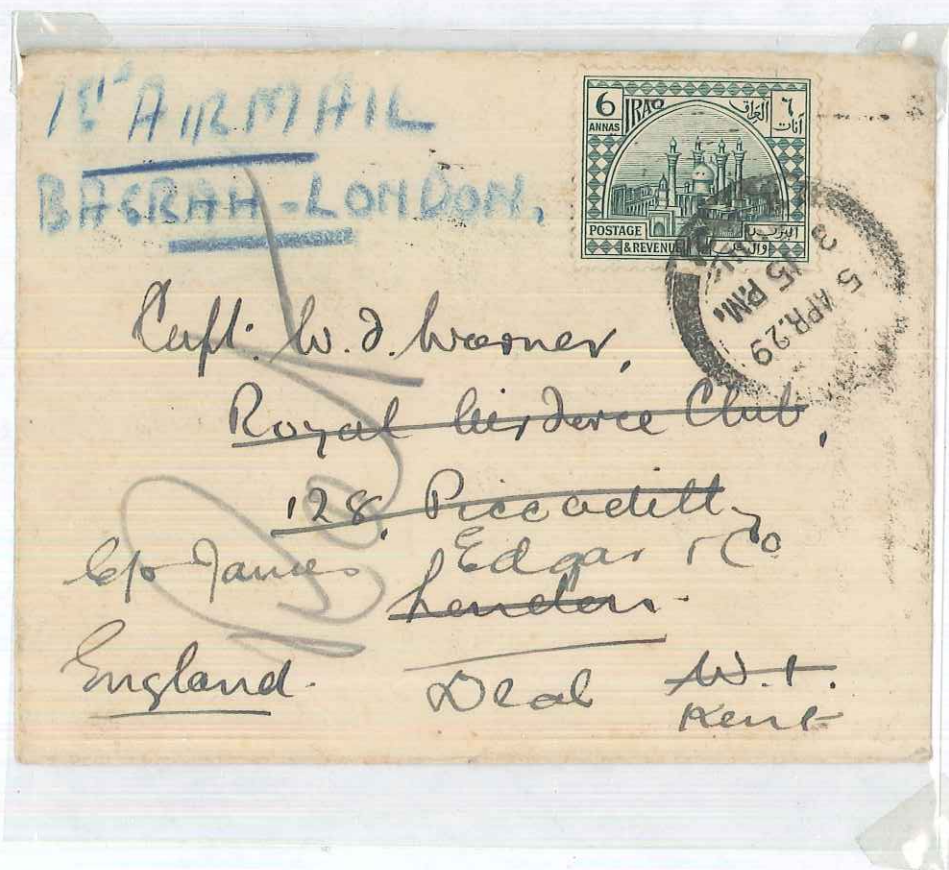 1st AIRMAIL
BASRAH-LONDON.
6 IRAQ العراق ٦
ANNAS آنات
POSTAGE
& REVENUE
3 15 P.M.
5 APR.29
Capt. W. J. Warner,
Royal Air Force Club,
128, Piccadilly
c/o James Edgar & Co
London.
England. Deal W.1.
Kent